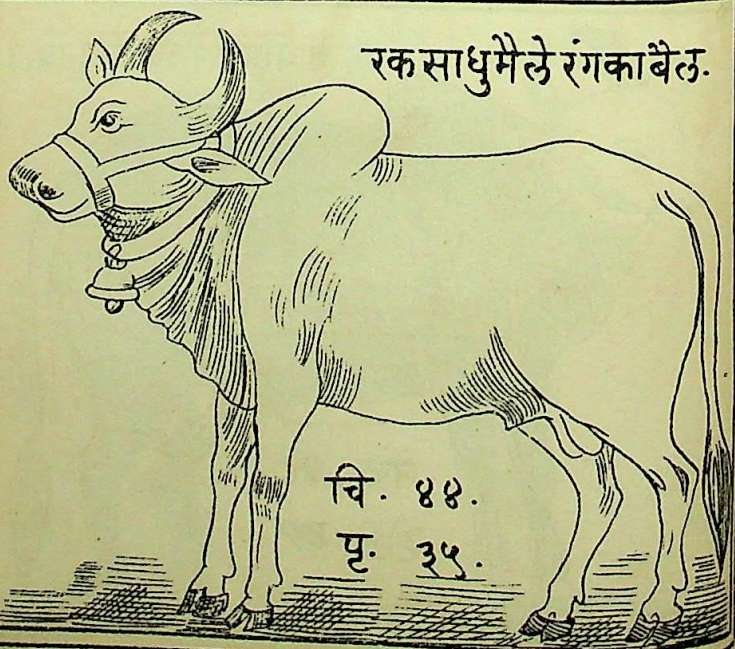 रक साधु मैले रंग का बैल.
चि. ४४.
पृ. ३५.